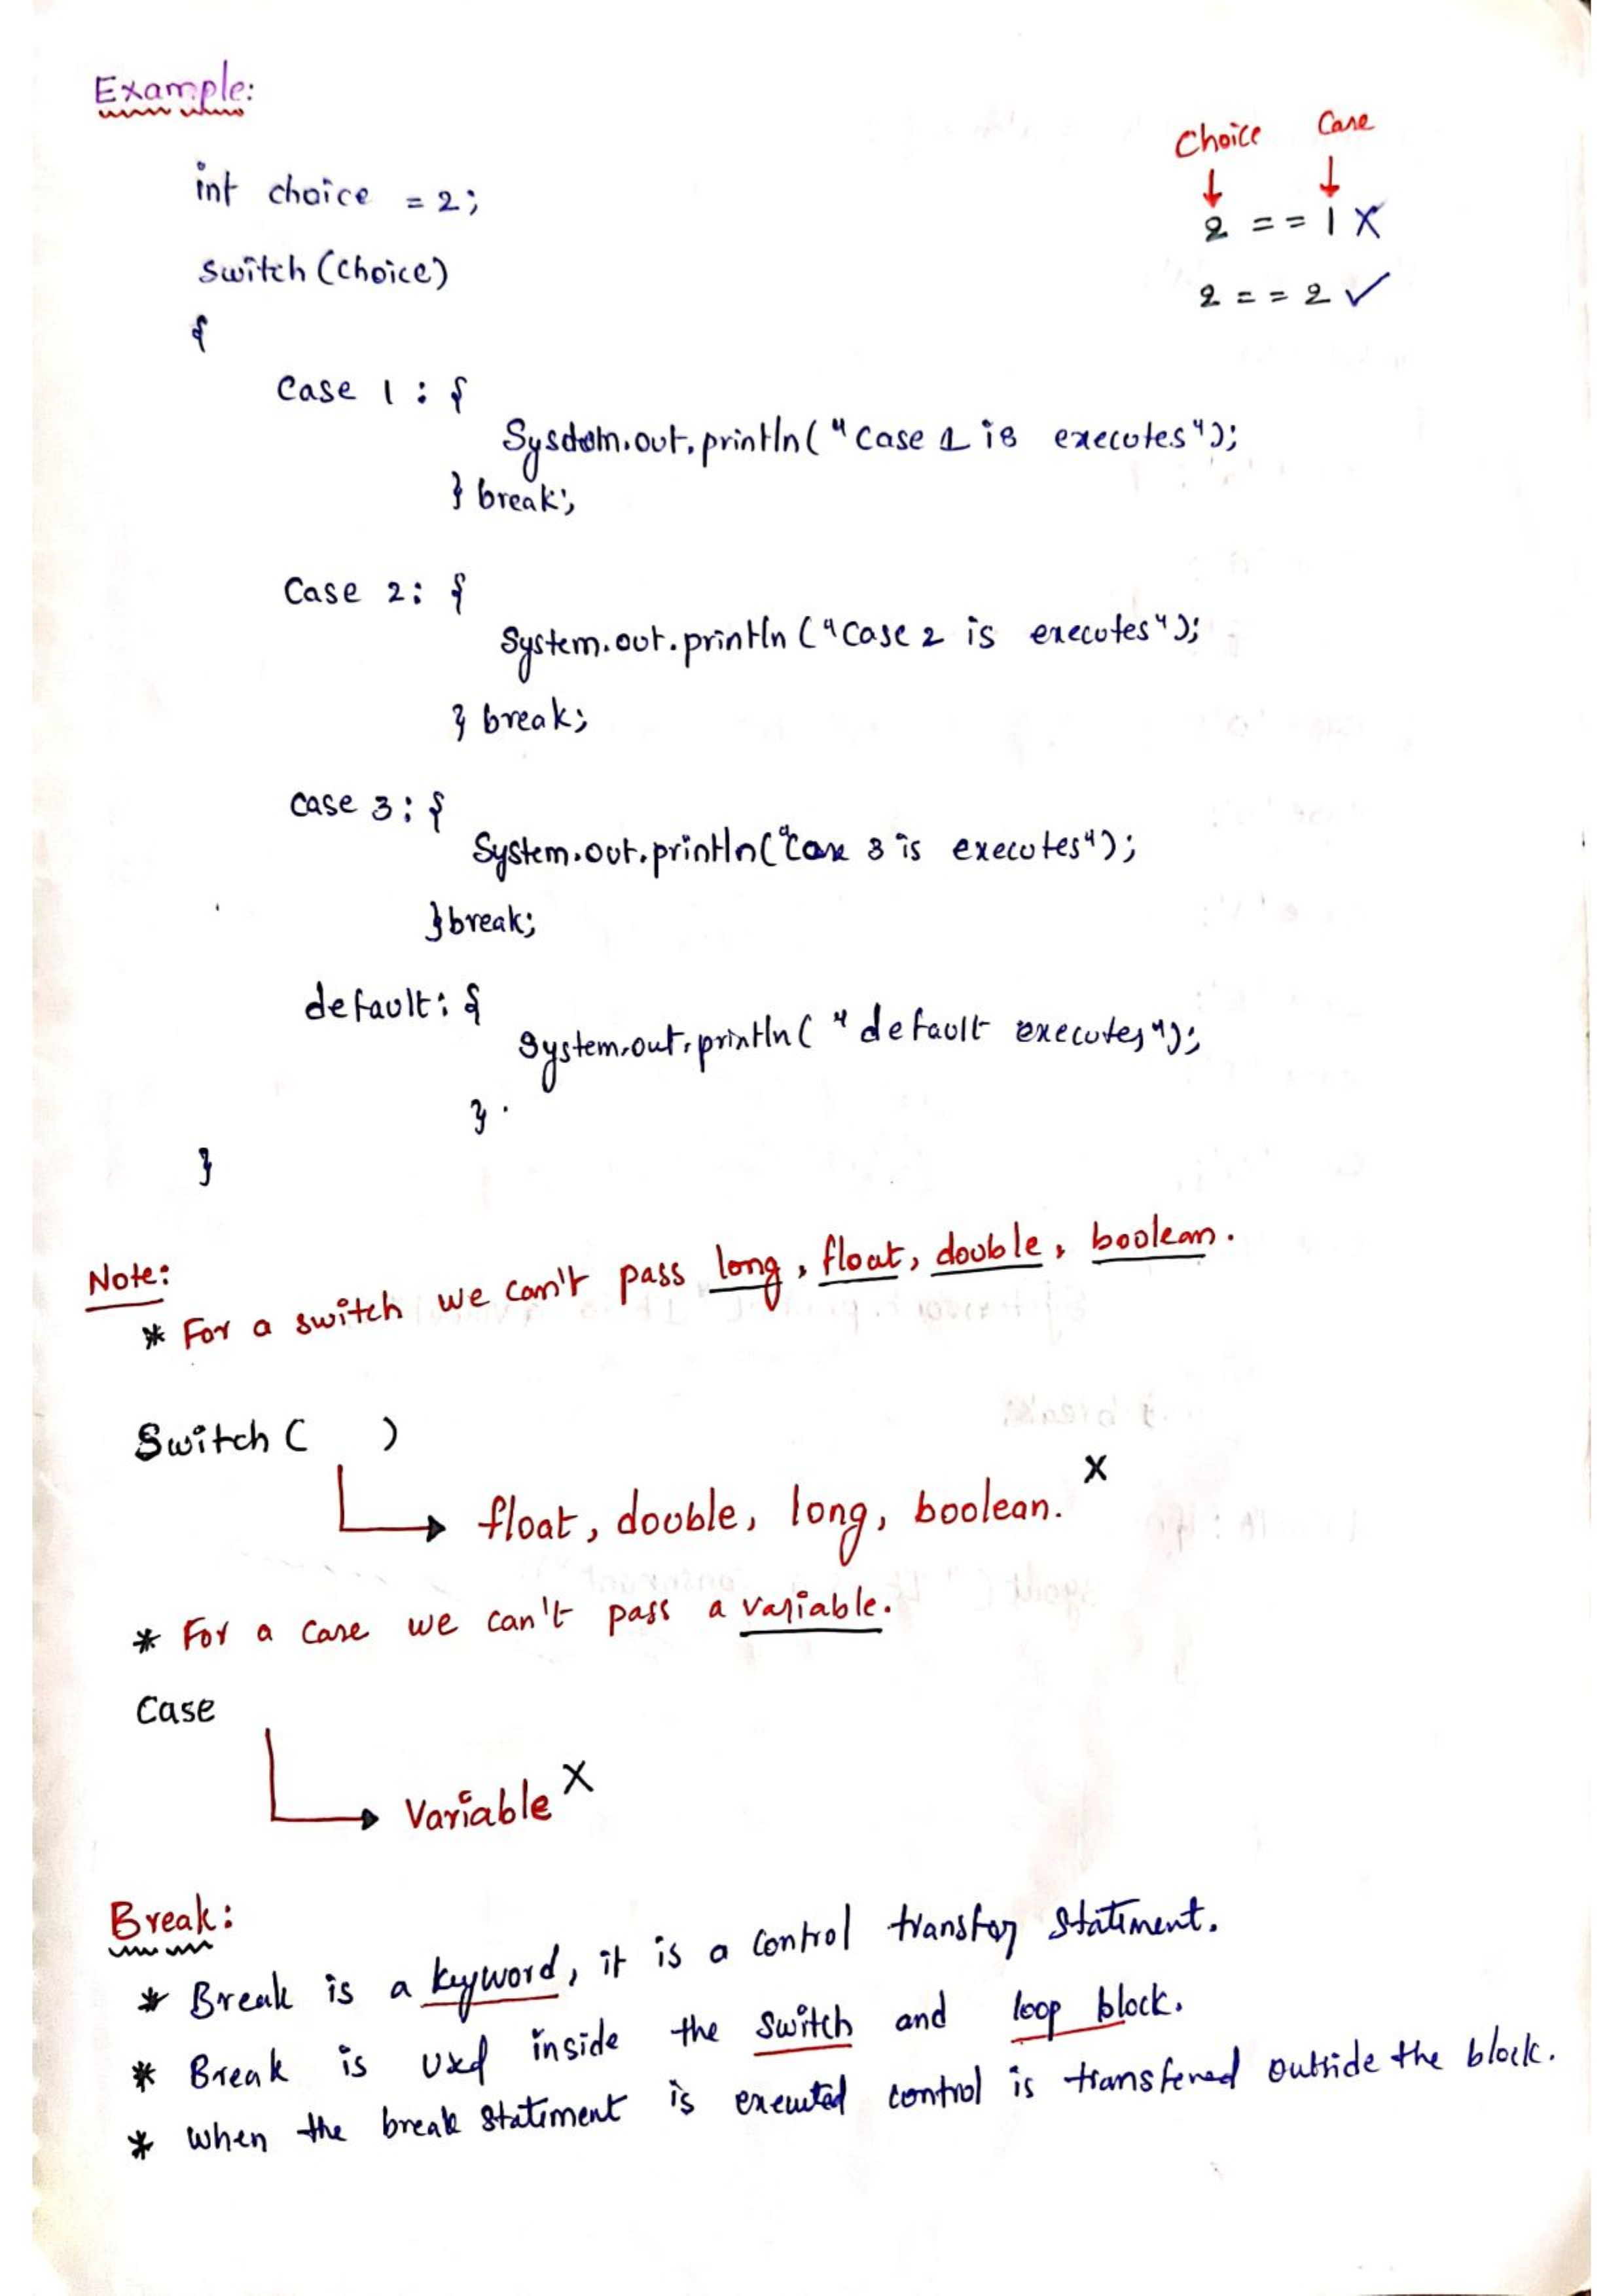 Example:
Choice Case
int choice = 2;
2 == 1 X
switch (choice)
2 == 2 ✓
{
Case 1 : {
System.out.println("Case 1 is executes");
} break;
Case 2: {
System.out.println ("Case 2 is executes");
} break;
case 3: {
System.out.println("Case 3 is executes");
} break;
default: {
System.out.println( "default executes");
} .
}
Note:
* For a switch we can't pass long, float, double, boolean.
Switch ( )
float, double, long, boolean. X
* For a case we can't pass a variable.
Case
Variable X
Break:
* Break is a keyword, it is a control transfer statement.
* Break is used inside the switch and loop block.
* when the break statement is executed control is transfered outside the block.